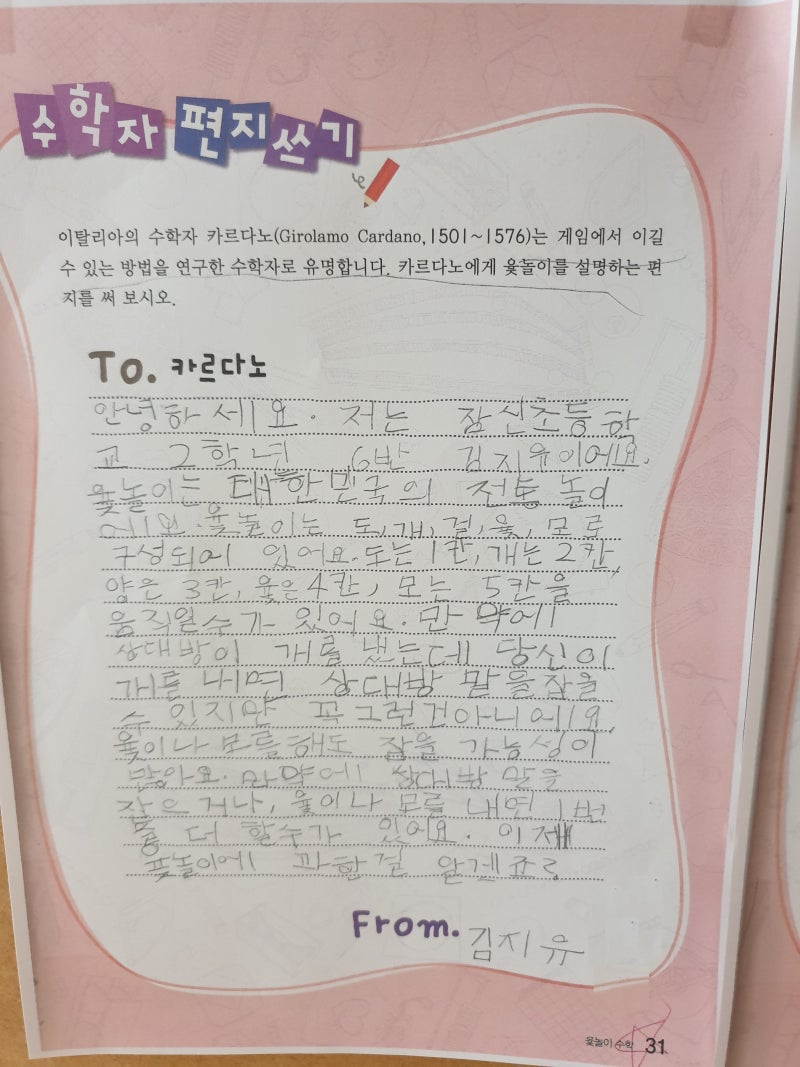 수학자 편지쓰기
이탈리아의 수학자 카르다노(Girolamo Cardano, 1501~1576)는 게임에서 이길
수 있는 방법을 연구한 수학자로 유명합니다. 카르다노에게 윷놀이를 설명하는 편
지를 써 보시오.
To. 카르다노
안녕하세요. 저는 잠신초등학
교 2학년 6반 김지유이에요.
윷놀이는 대한민국의 전통 놀이
에요. 윷놀이는 도, 개, 걸, 윷, 모로
구성되어 있어요. 도는 1칸, 개는 2칸,
양은 3칸, 윷은 4칸, 모는 5칸을
움직일수가 있어요. 만약에
상대방이 개를 냈는데 당신이
개를 내면 상대방 말을잡을
수 있지만 꼭그런건아니에요.
윷이나 모를해도 잡을 가능성이
많아요. 만약에 상대방 말을
잡으거나, 윷이나 모를 내면 1번
을 더 할수가 있어요. 이제
윷놀이에 과한걸 알겐죠?
From. 김지유
윷놀이 수학 31